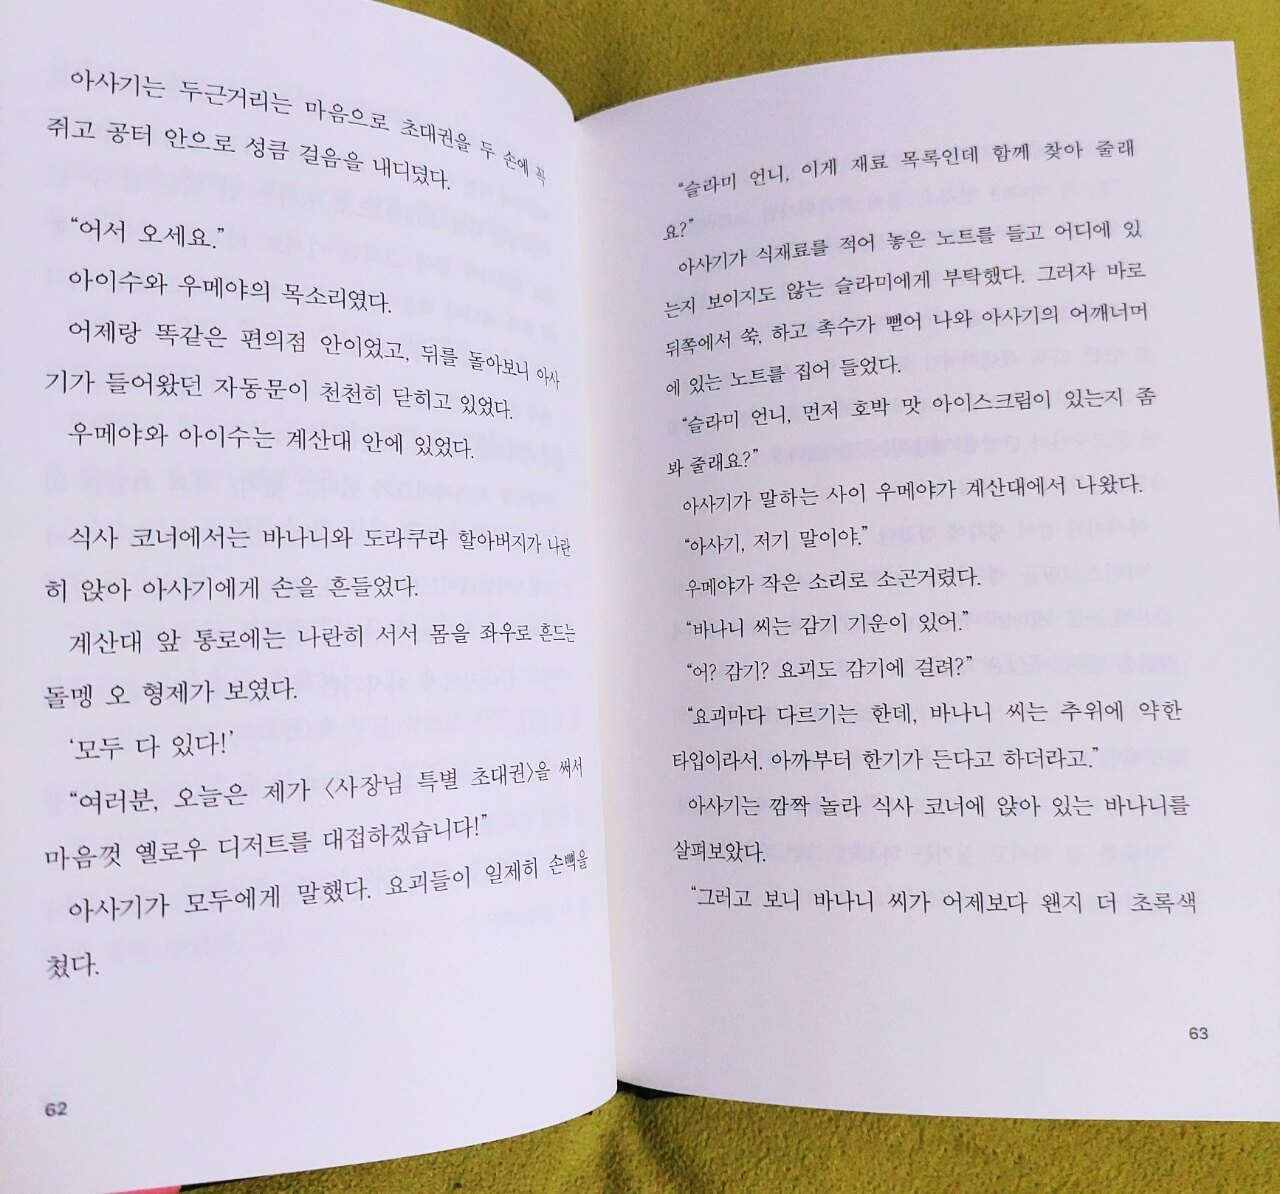 아사기는 두근거리는 마음으로 초대권을 두 손에 꼭
쥐고 공터 안으로 성큼 걸음을 내디뎠다.
“어서 오세요.”
아이수와 우메야의 목소리였다.
어제랑 똑같은 편의점 안이었고, 뒤를 돌아보니 아사
기가 들어왔던 자동문이 천천히 닫히고 있었다.
우메야와 아이수는 계산대 안에 있었다.
식사 코너에서는 바나니와 도라쿠라 할아버지가 나란
히 앉아 아사기에게 손을 흔들었다.
계산대 앞 통로에는 나란히 서서 몸을 좌우로 흔드는
돌멩 오 형제가 보였다.
‘모두 다 있다!’
“여러분, 오늘은 제가 〈사장님 특별 초대권〉을 써서
마음껏 옐로우 디저트를 대접하겠습니다!”
아사기가 모두에게 말했다. 요괴들이 일제히 손뼉을
쳤다.
62
“슬라미 언니, 이게 재료 목록인데 함께 찾아 줄래
요?”
아사기가 식재료를 적어 놓은 노트를 들고 어디에 있
는지 보이지도 않는 슬라미에게 부탁했다. 그러자 바로
뒤쪽에서 쑥, 하고 촉수가 뻗어 나와 아사기의 어깨너머
에 있는 노트를 집어 들었다.
“슬라미 언니, 먼저 호박 맛 아이스크림이 있는지 좀
봐 줄래요?”
아사기가 말하는 사이 우메야가 계산대에서 나왔다.
“아사기, 저기 말이야.”
우메야가 작은 소리로 소곤거렸다.
“바나니 씨는 감기 기운이 있어.”
“어? 감기? 요괴도 감기에 걸려?”
“요괴마다 다르기는 한데, 바나니 씨는 추위에 약한
타입이라서. 아까부터 한기가 든다고 하더라고.”
아사기는 깜짝 놀라 식사 코너에 앉아 있는 바나니를
살펴보았다.
“그러고 보니 바나니 씨가 어제보다 왠지 더 초록색
63